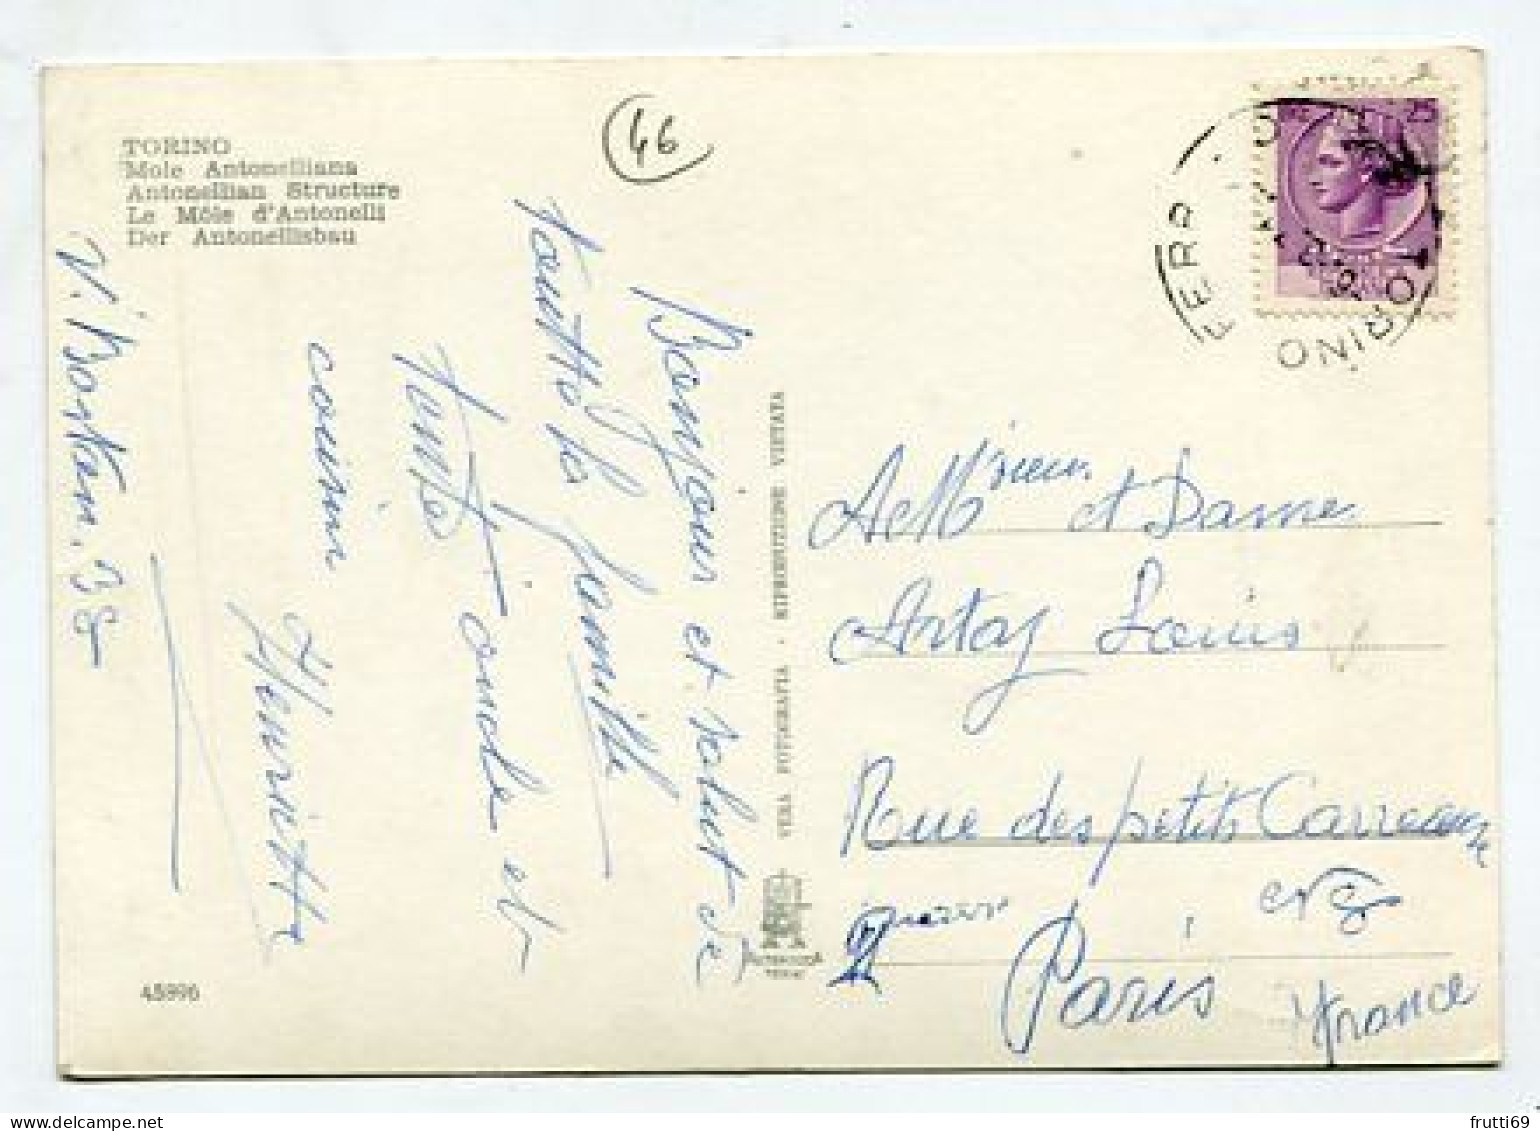 TORINO
Mole Antonelliana
Antonellian Structure
Le Môle d'Antonelli
Der Antonellisbau
46
Bonjour et salut de
toutte la famille
tente oncle et
cousin
Henriette
V. Bostan. 38
VERA FOTOGRAFIA - RIPRODUZIONE VIETATA
FERR
TORINO
AeMsieur et Dame
Artas Louis
Rue des petits Carreaux
2
Paris
France
45996
frutti69